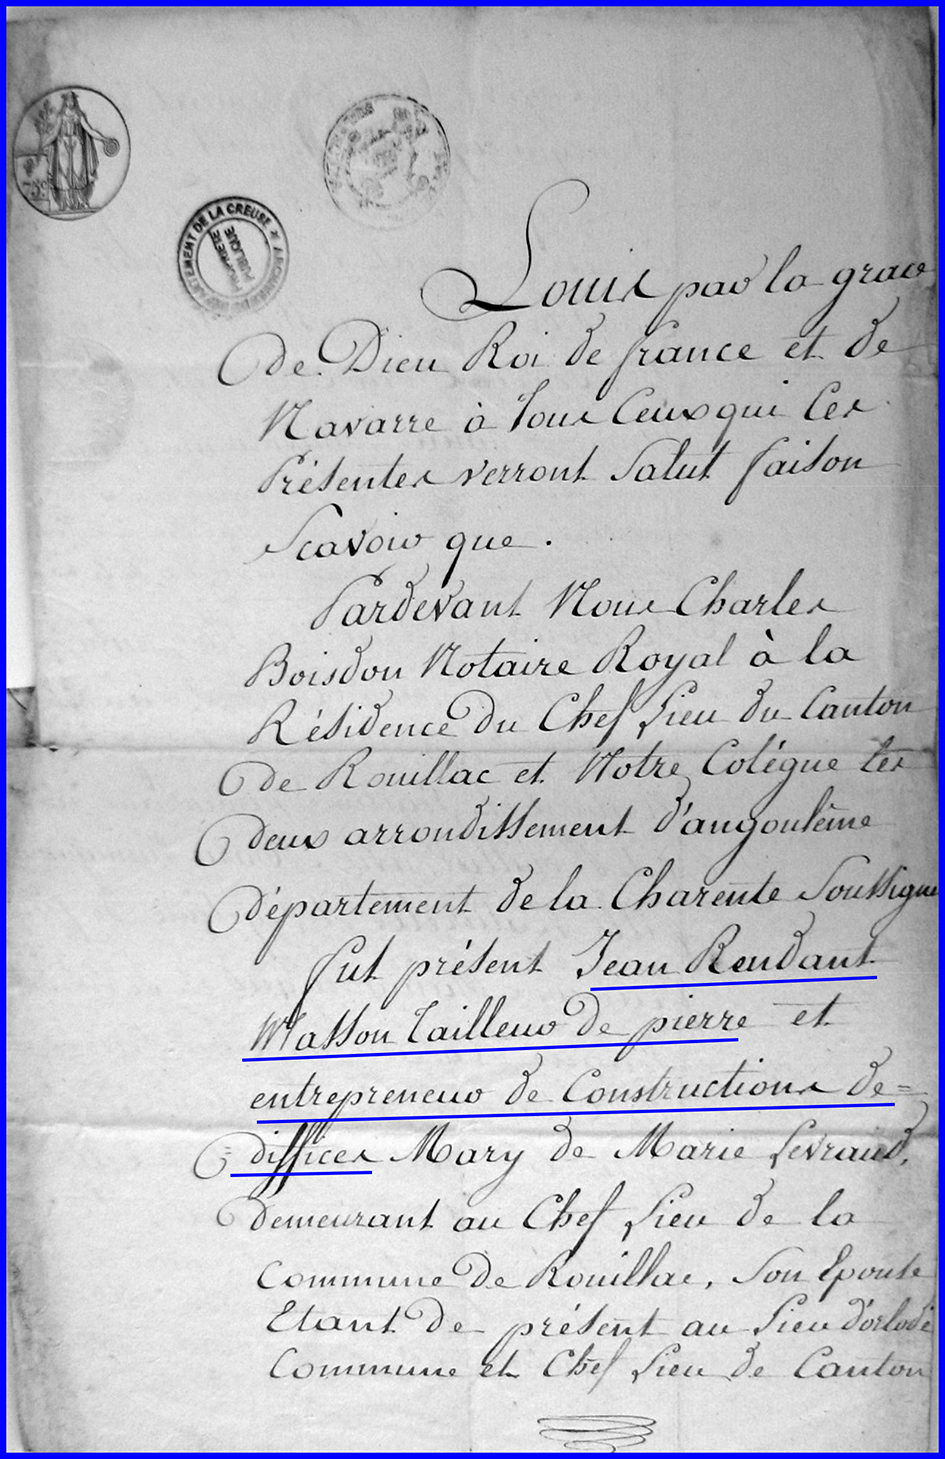 DEPARTEMENT DE LA CREUSE * ARCHIVES
PROPRIETE
PUBLIQUE
75c
Louis par la grace
de Dieu Roi de france et de
Navarre à tous Ceux qui Ces
Présentes verront Salut faison
Scavoir que .
Pardevant Nous Charles
Boisdon Notaire Royal à la
Résidence du Chef Lieu du Canton
de Rouillac et Notre Colégue tes
deux arrondissement d'angoulême
département de la Charente Soussigné
fut présent Jean Rendant
Masson Tailleur de pierre et
entrepreneur de Constructions de=
=diffices Mary de Marie Levraud,
demeurant au Chef Lieu de la
Commune de Rouillac, Son Epouse
Etant de présent au Lieu
Commune et Chef Lieu de Canton